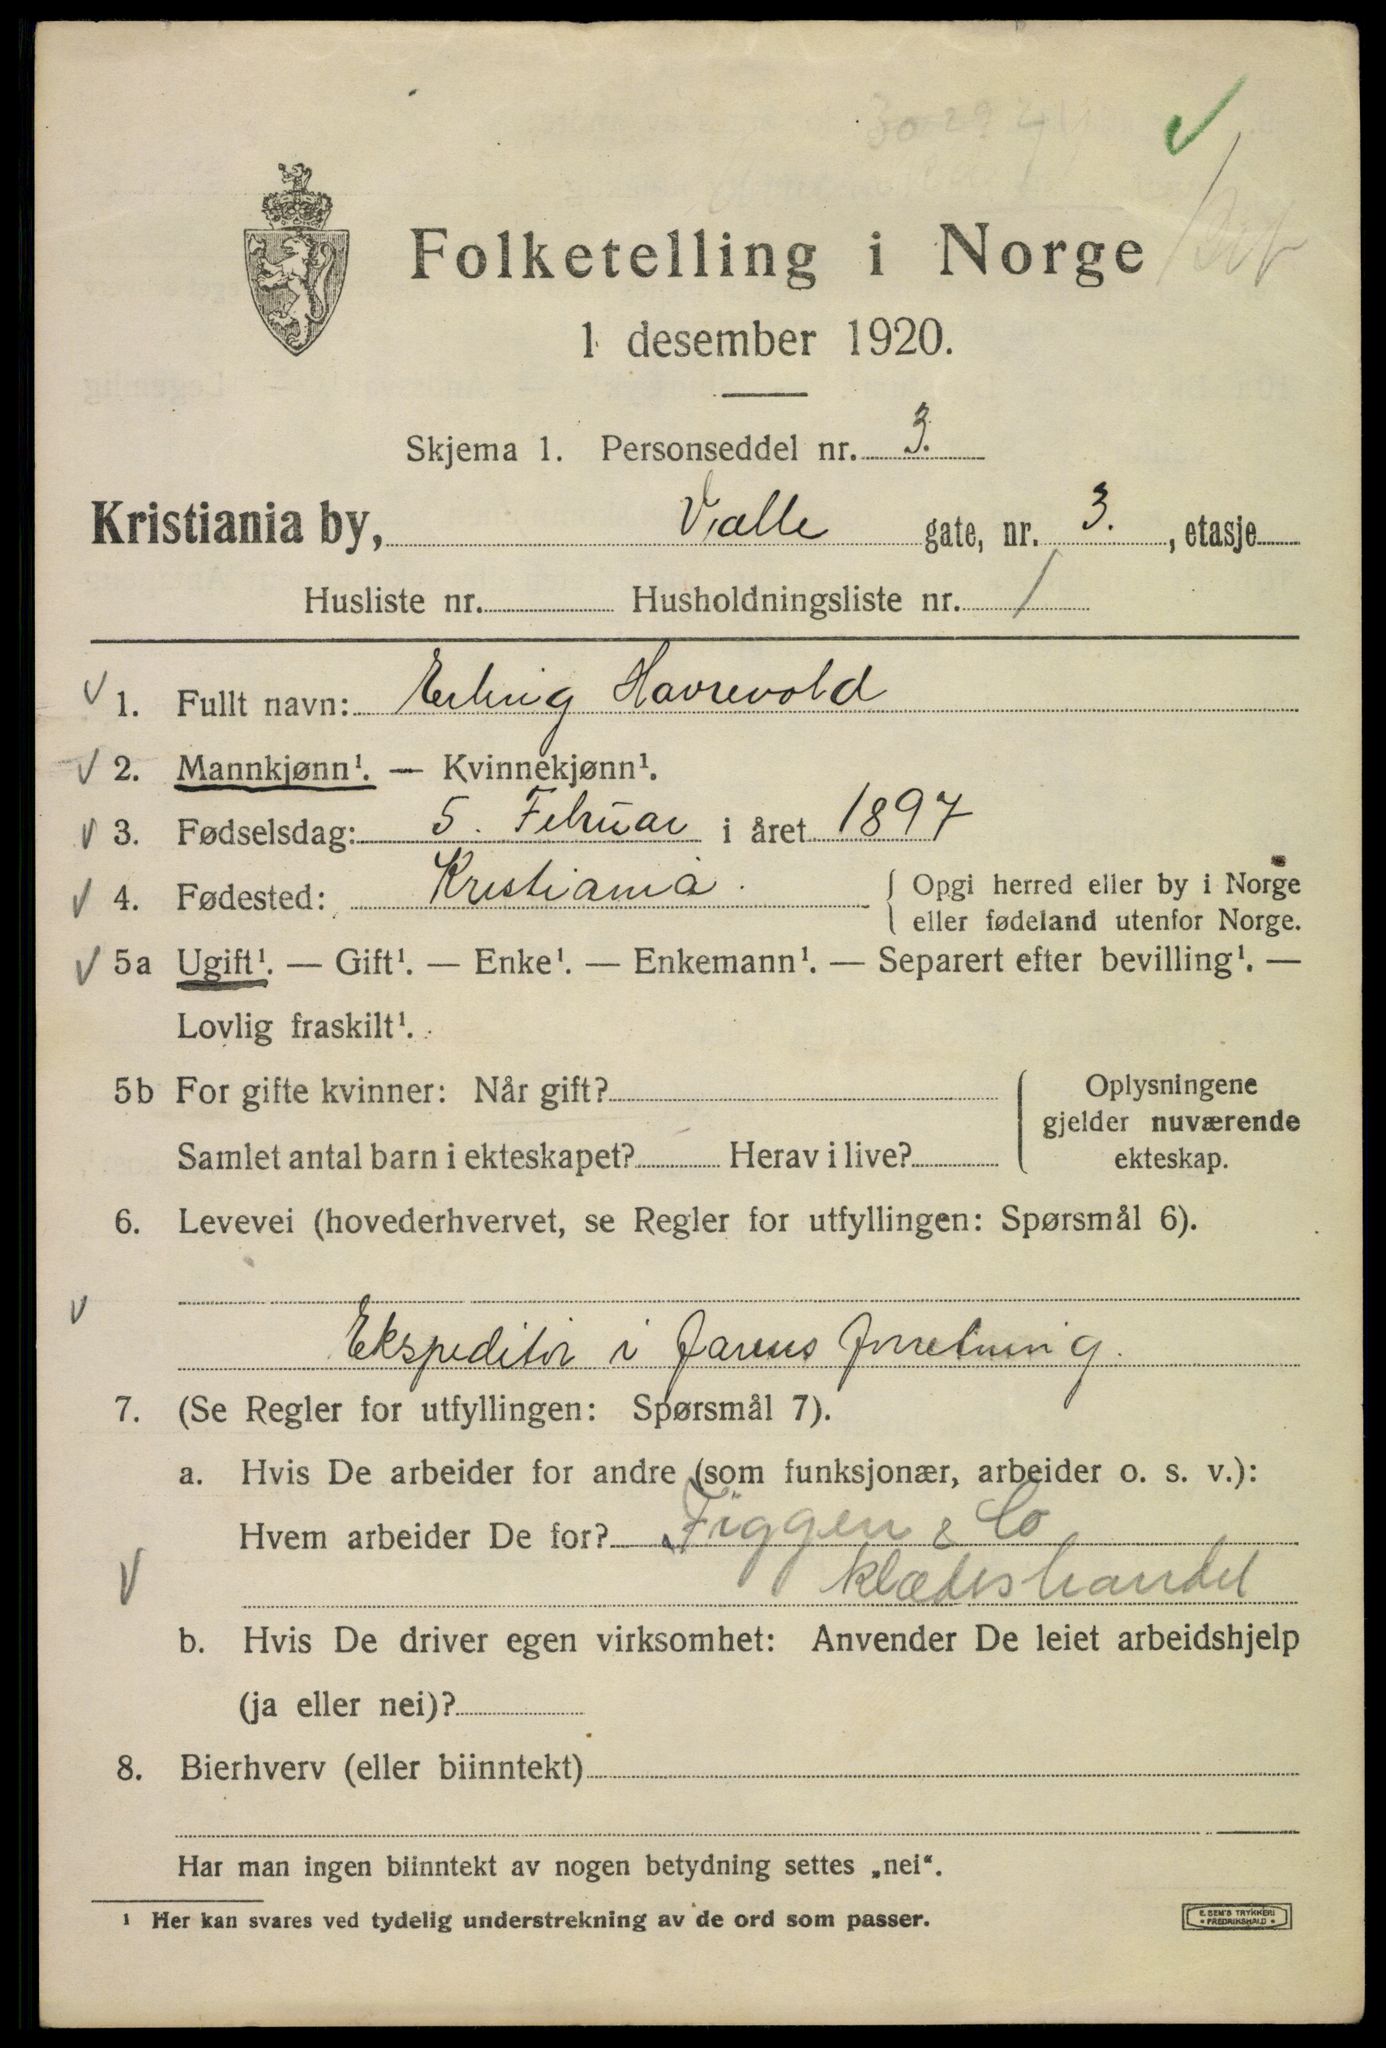 Folketelling i Norge
1 desember 1920.
Skjema 1. Personseddel nr. 3.
Kristiania by, Valle gate, nr. 3. , etasje
Husliste nr. Husholdningsliste nr. 1
1. Fullt navn: Erling Havrevold
2. Mannkjønn¹. — Kvinnekjønn¹.
3. Fødselsdag: 5. Februar i året 1897
4. Fødested: Kristiania. { Opgi herred eller by i Norge
eller fødeland utenfor Norge.
5a Ugift¹. — Gift¹. — Enke¹. — Enkemann¹. — Separert efter bevilling¹. —
Lovlig fraskilt¹.
5b For gifte kvinner: Når gift? { Oplysningene
gjelder nuværende
Samlet antal barn i ekteskapet? Herav i live? ekteskap.
6. Levevei (hovederhvervet, se Regler for utfyllingen: Spørsmål 6).
Ekspeditör i farens forretning.
7. (Se Regler for utfyllingen: Spørsmål 7).
a. Hvis De arbeider for andre (som funksjonær, arbeider o. s. v.):
Hvem arbeider De for? Figgen & Co
klædeshandel
b. Hvis De driver egen virksomhet: Anvender De leiet arbeidshjelp
(ja eller nei)?
8. Bierhverv (eller biinntekt)
Har man ingen biinntekt av nogen betydning settes „nei“.
¹ Her kan svares ved tydelig understrekning av de ord som passer.
E. SEM'S TRYKKERI
FREDRIKSHALD